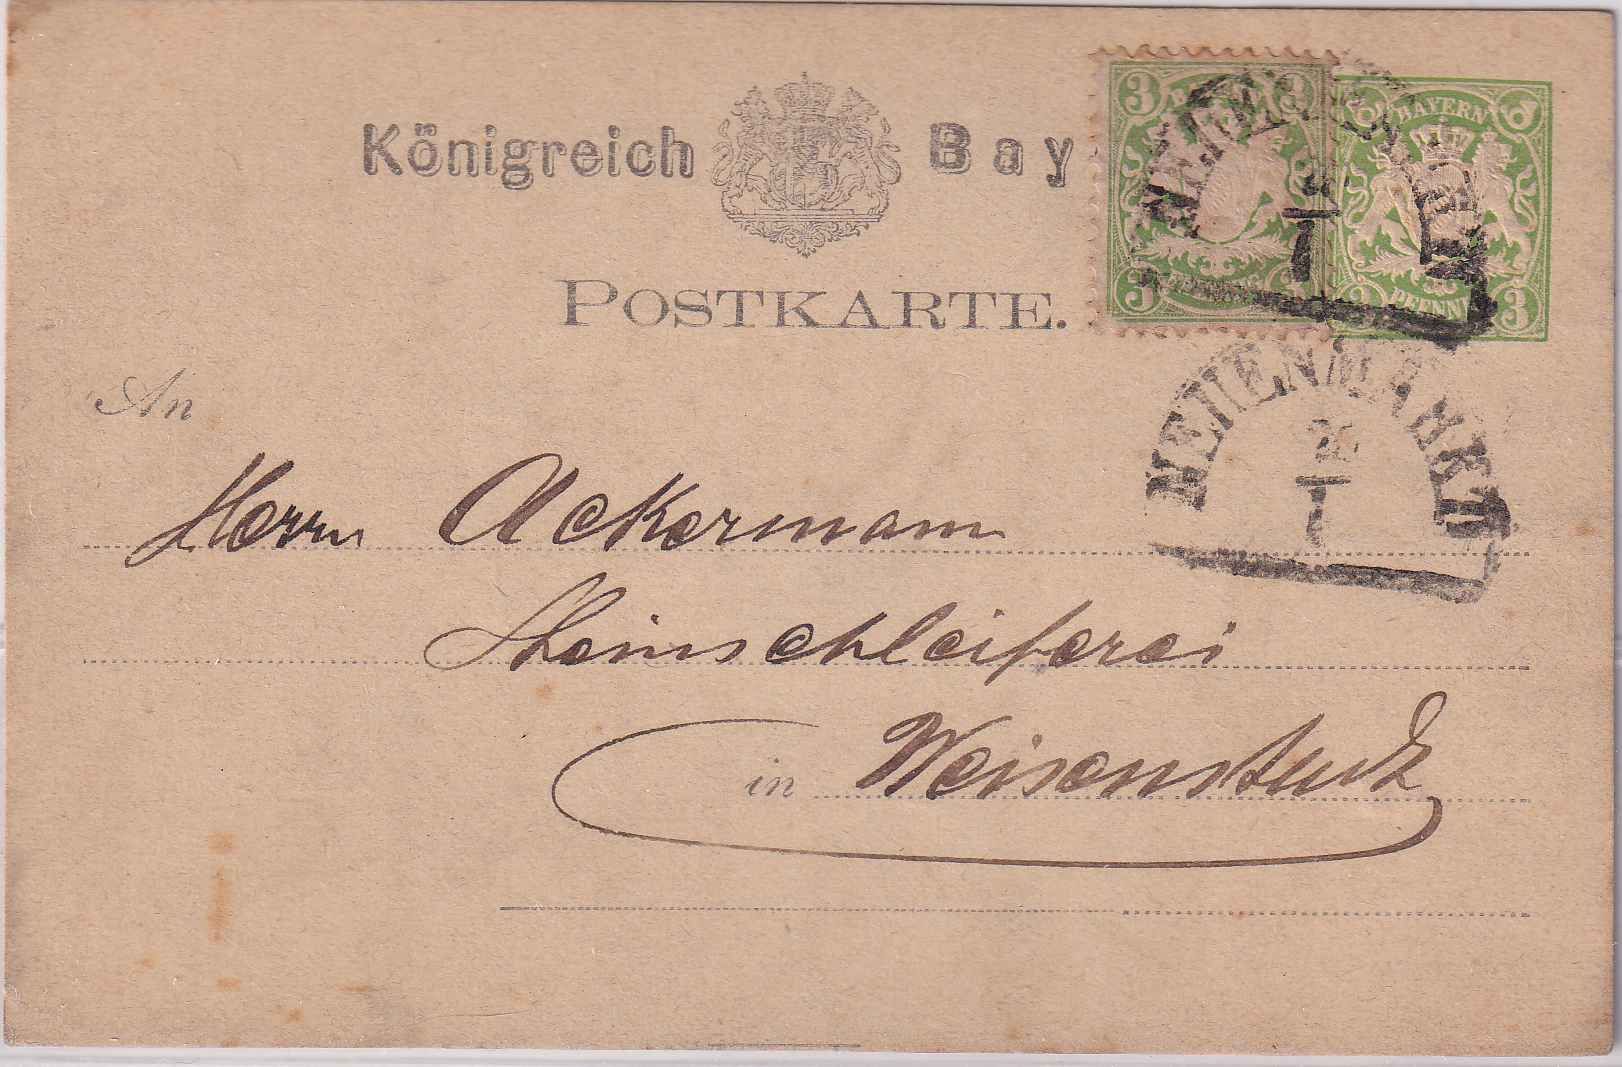 Königreich Bay
3 3
BAYERN
3 PFENNI 3
POSTKARTE.
NEUENMARKT
26
I
An
Herrn Ackermann
Steinschleiferei
in Weisenstadt